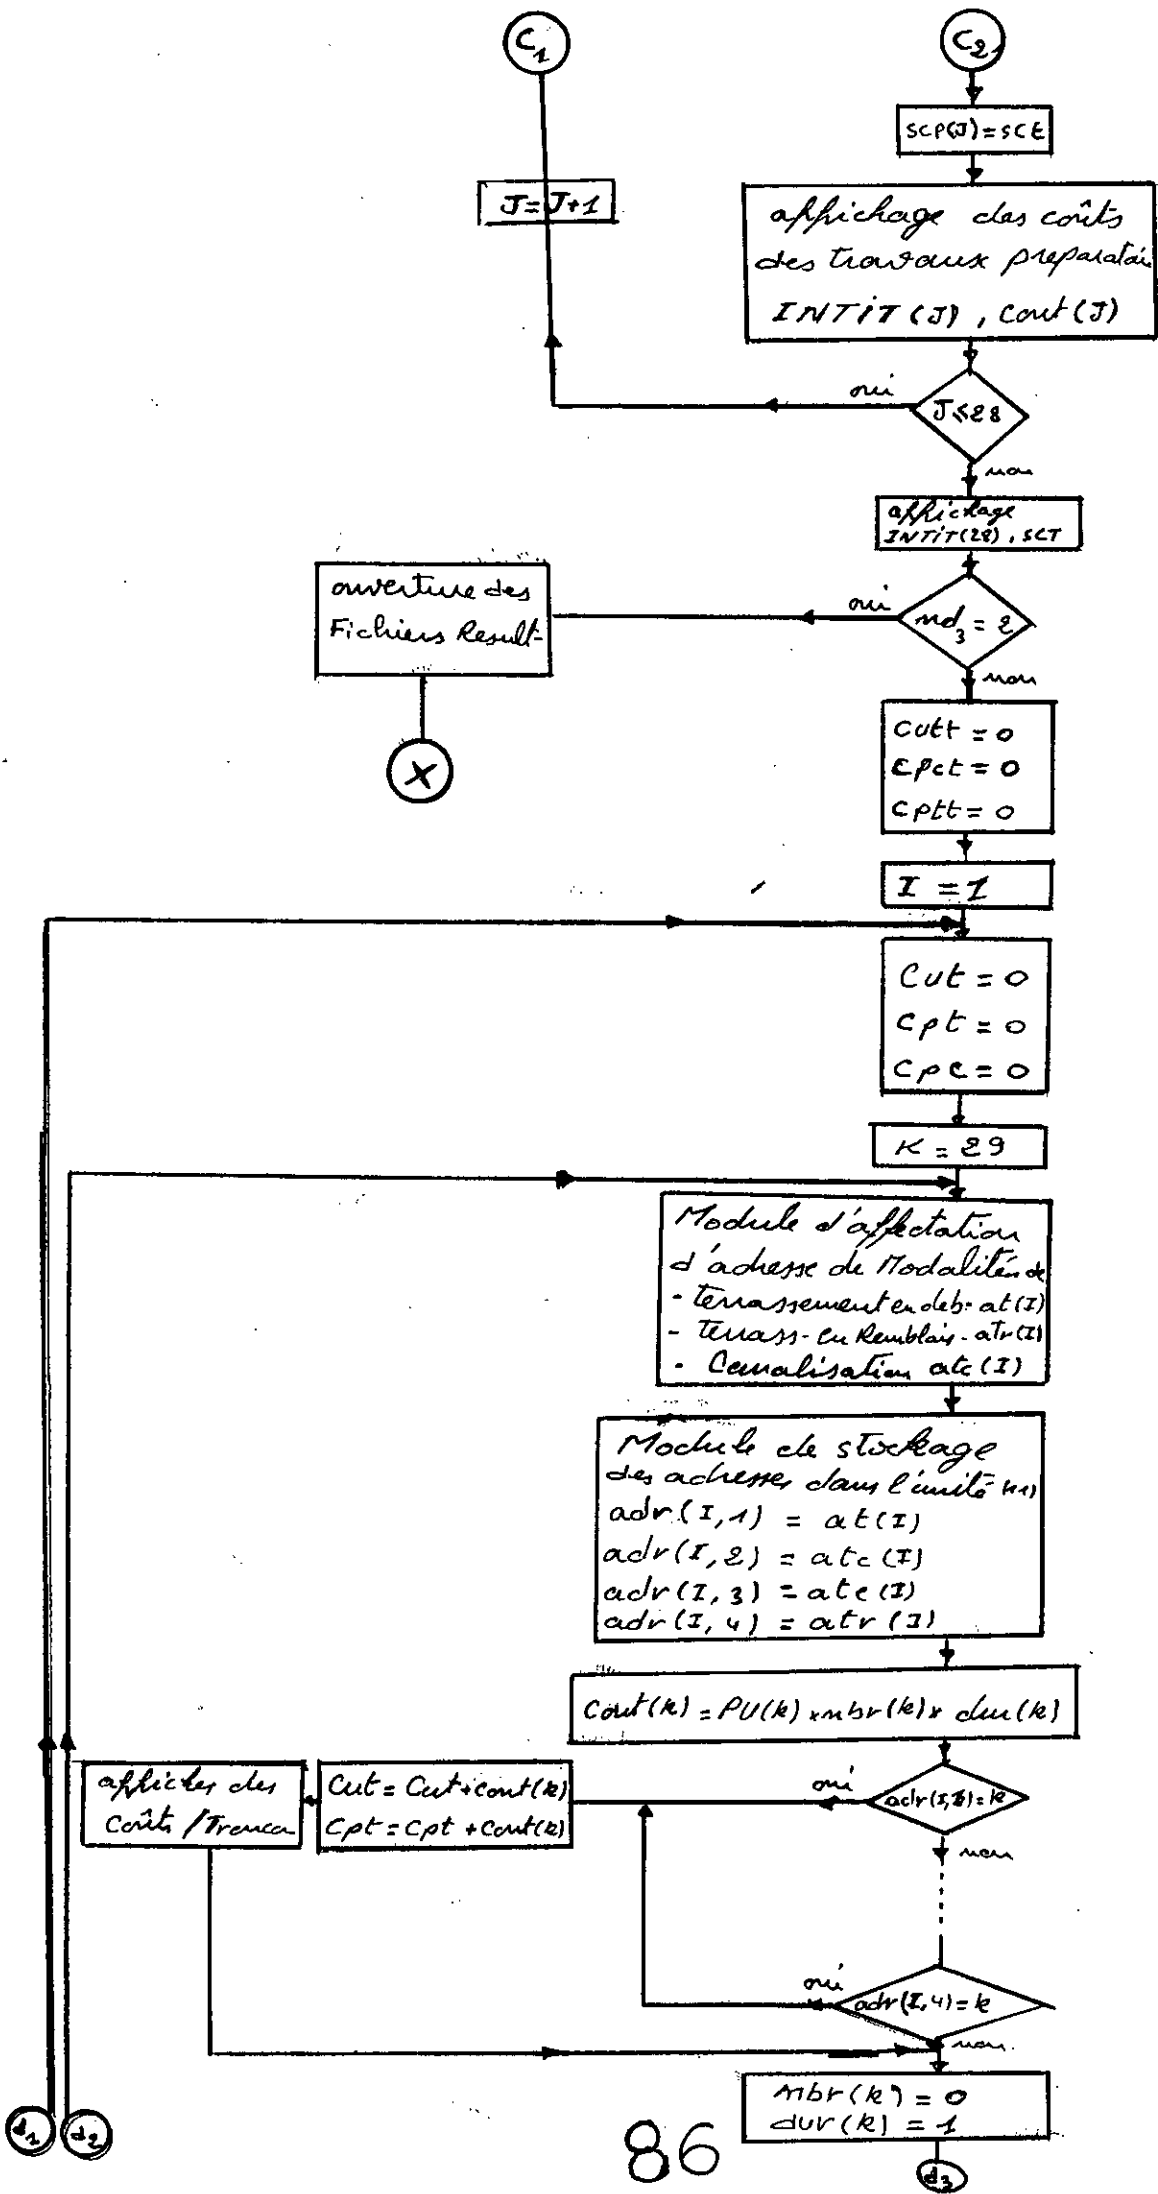 C1
C2
SCP(J)=SCE
J=J+1
affichage des coûts
des travaux preparatoi
INTIT(J), Cout(J)
oui
J≤28
non
affichage
INTIT(28), SCT
ouverture des
Fichiers Result-
oui
nd3 = 2
non
X
Cutt = 0
Cpct = 0
Cptt = 0
I = 1
Cut = 0
Cpt = 0
Cpc = 0
K = 29
Module d'affectation
d'adresse de Modalités de
- terrassement en deb. at(I)
- Terrass- en Remblais- atr(I)
- Canalisation atc(I)
Module de stockage
des adresses dans l'unité
adr(I,1) = at(I)
adr(I,2) = atc(I)
adr(I,3) = ate(I)
adr(I,4) = atr(I)
Cout(k) = PU(k) x nbr(k) x dur(k)
afficher des
Coûts /Tronca
Cut = Cut+cout(k)
Cpt = Cpt +Cout(k)
oui
=k
non
oui
adr(I,4)=k
non
nbr(k) = 0
dur(k) = 1
d1
d2
86
d3